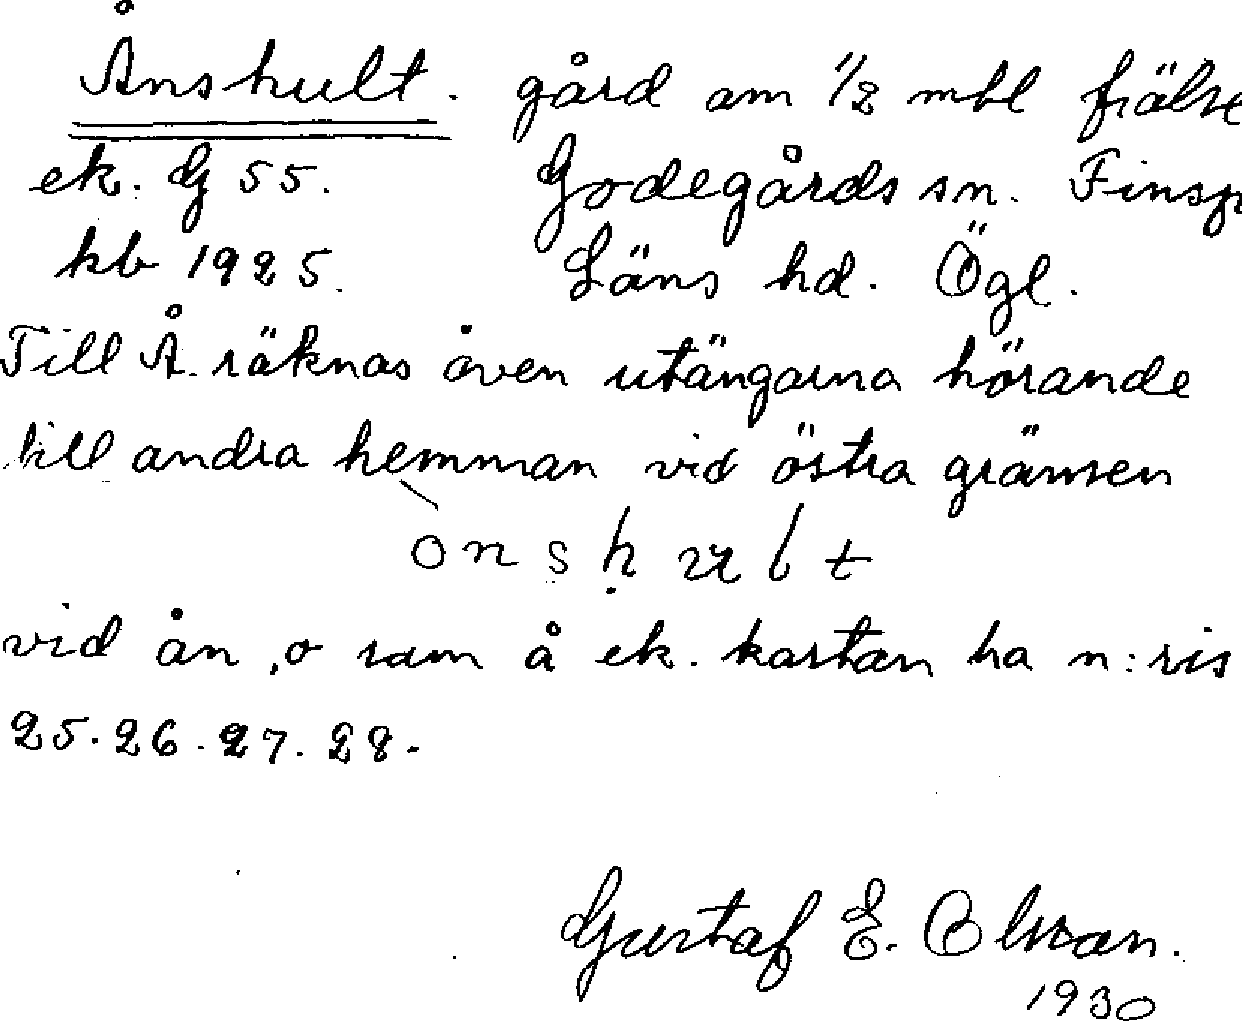 Ånshult. gård om 1/2 mtl frälse
ek. G 55. Godegårds sn. Finsp
kb 1925. Läns hd. Ögl.
Till Å. räknas även utängarna hörande
till andra hemman vid östra gränsen
vid ån, o som å ek. kartan ha n:ris
25. 26. 27. 28.
Gustaf E. Olsson.
1930